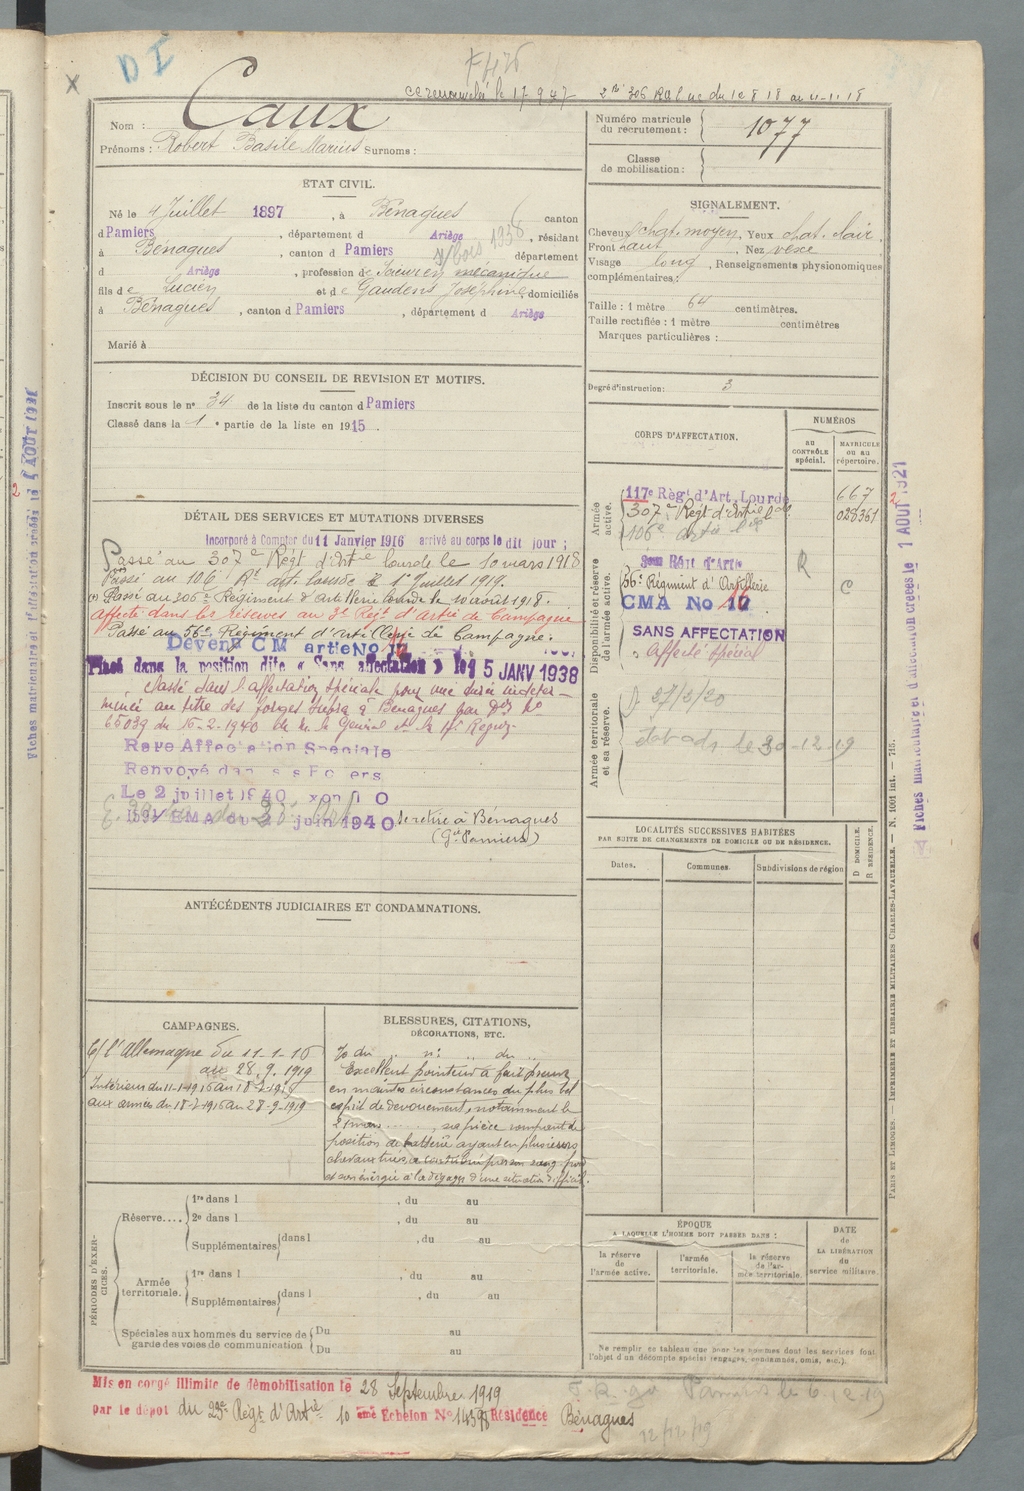 D I
X
Caux
Nom :
Prénoms : Robert Basile Marius Surnoms :
ÉTAT CIVIL.
Né le 4 Juillet 1897, à Bénagues canton
d Pamiers, département d Ariège, résidant
à Bénagues, canton d Pamiers département
d Ariège, profession de Scieur mécanique
fils de Lucien et de Gaudens Joséphine, domiciliés
à Bénagues, canton d Pamiers, département d Ariège
Marié à
DÉCISION DU CONSEIL DE REVISION ET MOTIFS.
Inscrit sous le n° 34 de la liste du canton d Pamiers
Classé dans la 1 e partie de la liste en 1915
DÉTAIL DES SERVICES ET MUTATIONS DIVERSES
Incorporé à Compter du 11 Janvier 1916 arrivé au corps le dit jour ;
Passé au 307e Régt d'Artie lourde le 10 mars 1918
Passé au 106e Rt art. lourde le 1er Juillet 1919.
(1) Passé au 306e Régiment d'Artillerie lourde le 10 août 1918.
affecté dans les réserves au 3e Régt d'Artie de Campagne
Passé au 56e Régiment d'artillerie de Campagne.
Devenu CM artie No 16
Placé dans la position dite « Sans affectation » le 15 JANV 1938
classé dans l'affectation spéciale pour une durée indéter-
minée au titre des forges à Bénagues par
65039 du 16-2-1940 de M. le Général Ct la 17e Région
Raye Affectation Spéciale
Renvoyé dans ses Foyers
Le 2 juillet 1940
1894/EMA du juin 1940 se retire à Bénagues
(Gd Pamiers)
ANTÉCÉDENTS JUDICIAIRES ET CONDAMNATIONS.
CAMPAGNES.
C/ l'Allemagne du 11-1-16
au 28.9.1919
Intérieur du 11-1-1916 au 18-2-1916
aux armées du 18-2-1916 au 28-9-1919
BLESSURES, CITATIONS,
DÉCORATIONS, ETC.
Excellent pointeur a fait preuve
en maintes circonstances du plus bel
esprit de dévouement, notamment le
21 mars, sa pièce rompant de
position de batterie ayant eu plusieurs
chevaux tués, a contribué par son sang froid
et son énergie à la dégager d'une situation difficile.
PÉRIODES D'EXERCICES.
Réserve.... 1re dans l , du au
2e dans l , du au
Supplémentaires dans l , du au
Armée territoriale. 1re dans l , du au
Supplémentaires dans l , du au
Spéciales aux hommes du service de garde des voies de communication Du au
Du au
Mis en congé illimité de démobilisation le 28 Septembre 1919
par le dépôt du 23e Régt d'Artie 10 ème Echelon No 14398 Résidence Bénagues
12/12/19
Numéro matricule du recrutement : 1077
Classe de mobilisation :
SIGNALEMENT.
Cheveux chat. moyen, Yeux chat. clair,
Front haut, Nez vexe
Visage long, Renseignements physionomiques
complémentaires :
Taille : 1 mètre 64 centimètres.
Taille rectifiée : 1 mètre centimètres
Marques particulières :
Degré d'instruction : 3
CORPS D'AFFECTATION.
NUMÉROS
au CONTRÔLE spécial.
MATRICULE ou au répertoire.
Armée active.
117e Régt d'Art. Lourde 667
307e Régt d'Artie lde 028361
106e Artie lde
Disponibilité et réserve de l'armée active.
56e Régiment d'Artillerie
CMA No 16
SANS AFFECTATION
Affecté Spécial
R
C
Armée territoriale et sa réserve.
LOCALITÉS SUCCESSIVES HABITÉES
PAR SUITE DE CHANGEMENTS DE DOMICILE OU DE RÉSIDENCE.
Dates.
Communes.
Subdivisions de région
D DOMICILE.
R RÉSIDENCE.
ÉPOQUE
A LAQUELLE L'HOMME DOIT PASSER DANS :
la réserve de l'armée active.
l'armée territoriale.
la réserve de l'armée territoriale.
DATE
de
LA LIBÉRATION
du
service militaire.
Ne remplir ce tableau que pour les hommes dont les services font
l'objet d'un décompte spécial (engagés, condamnés, omis, etc.).
PARIS ET LIMOGES. — IMPRIMERIE ET LIBRAIRIE MILITAIRES CHARLES-LAVAUZELLE. — N. 1001 int. — 715.
Fiches matriculaire et d'affectation créées le 1 AOUT 1921